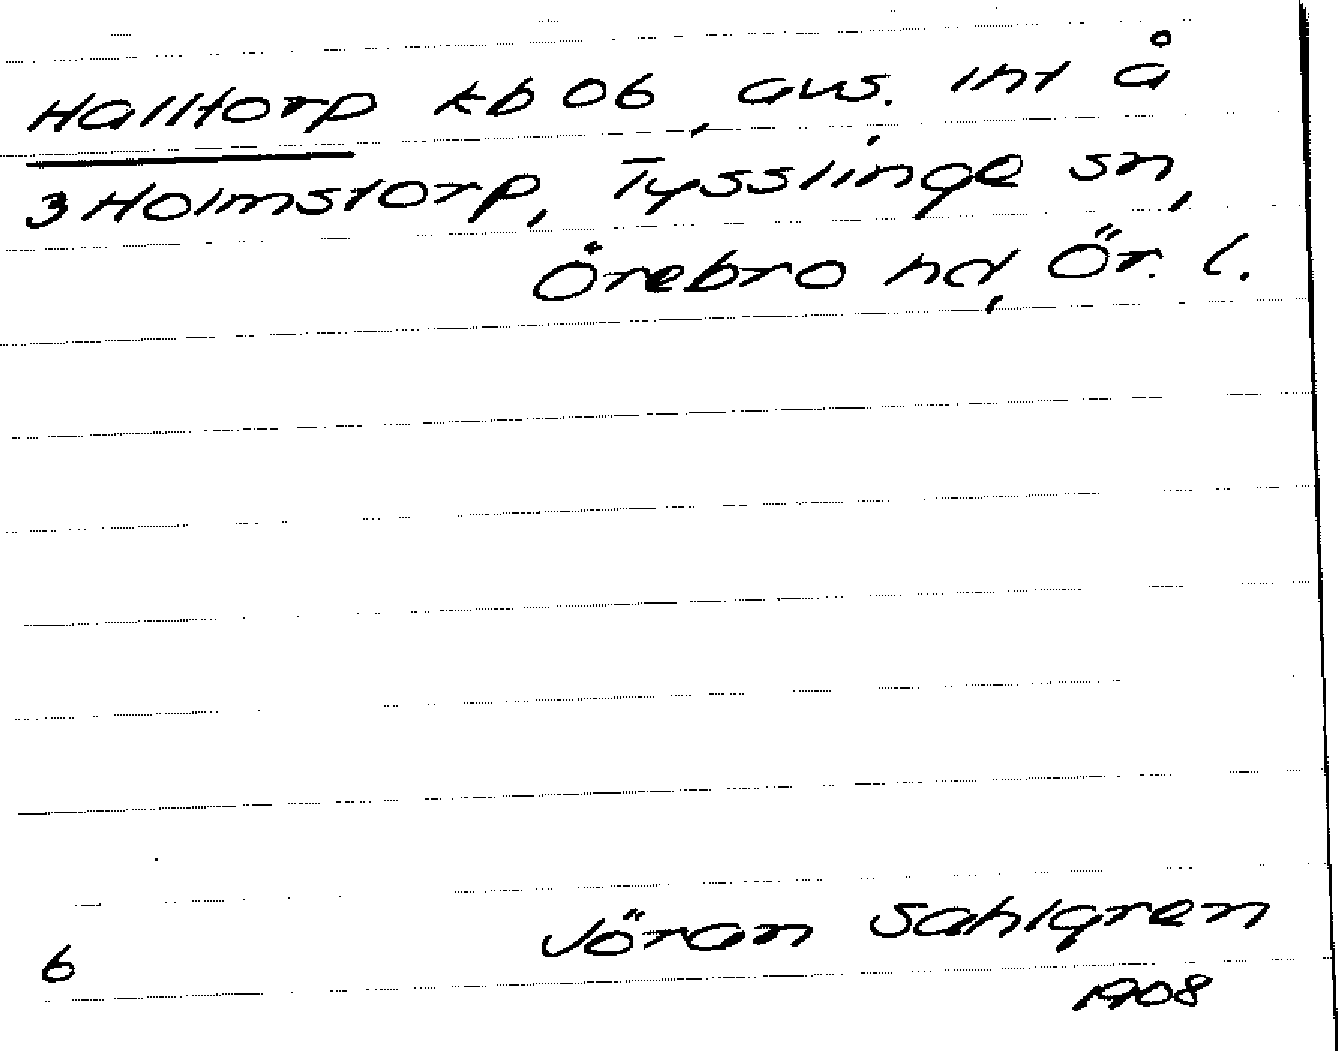 Halltorp kb 06, avs. int å
3 Holmstorp, Tysslinge sn,
Örebro hd, Ör. l.
Jöran Sahlgren
6
1908